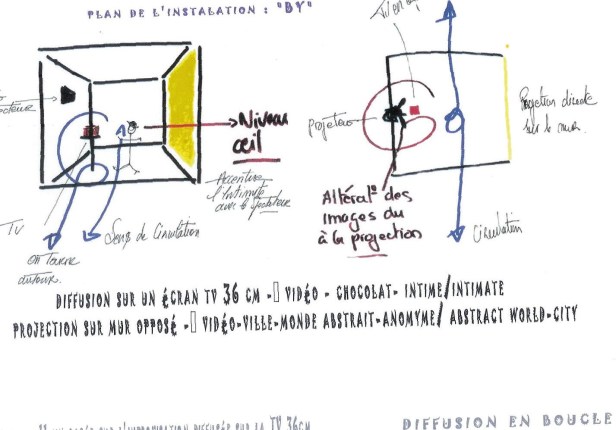 PLAN DE L'INSTALATION : "BY"
projecteur
Niveau
œil
Accentuer
l'intimité
avec le spectateur
TV
Sens de Circulation
on tourne
autour.
projeteur
Projection directe
sur le mur.
Altérat° des
images du
à la projection
Circulation
DIFFUSION SUR UN ÉCRAN TV 36 CM - VIDÉO - CHOCOLAT- INTIME/INTIMATE
PROJECTION SUR MUR OPPOSÉ - VIDÉO-VILLE-MONDE ABSTRAIT-ANOMYME/ ABSTRACT WORLD-CITY
SUR LA TV 36CM
DIFFUSION EN BOUCLE